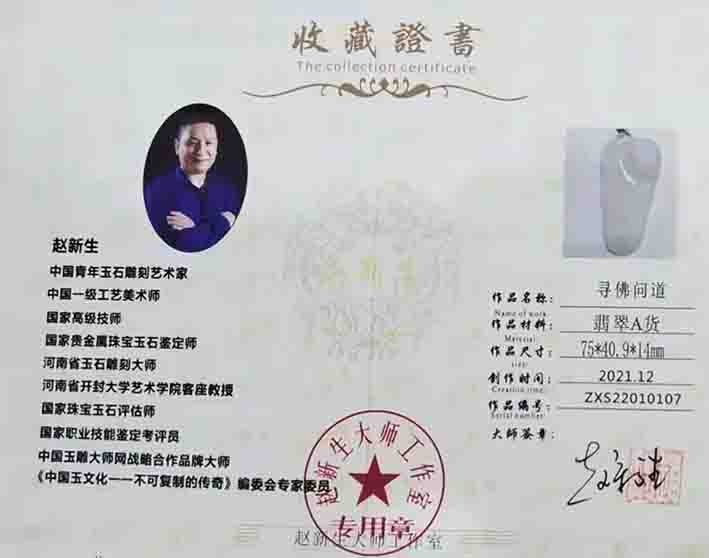 收藏證書
The collection certificate
赵新生
中国青年玉石雕刻艺术家
中国一级工艺美术师
国家高级技师
国家贵金属珠宝玉石鉴定师
河南省玉石雕刻大师
河南省开封大学艺术学院客座教授
国家珠宝玉石评估师
国家职业技能鉴定考评员
中国玉雕大师网战略合作品牌大师
《中国玉文化一一不可复制的传奇》编委会专家委员
作品名称： 寻佛问道
Name of work:
作品材料： 翡翠A货
Material:
作品尺寸： 75*40.9*14mm
size:
创作时间： 2021.12
Creation time:
作品编号： ZXS22010107
Serial number:
大师签章：
赵新生
赵新生大师工作室
专用章
赵新生大师工作室